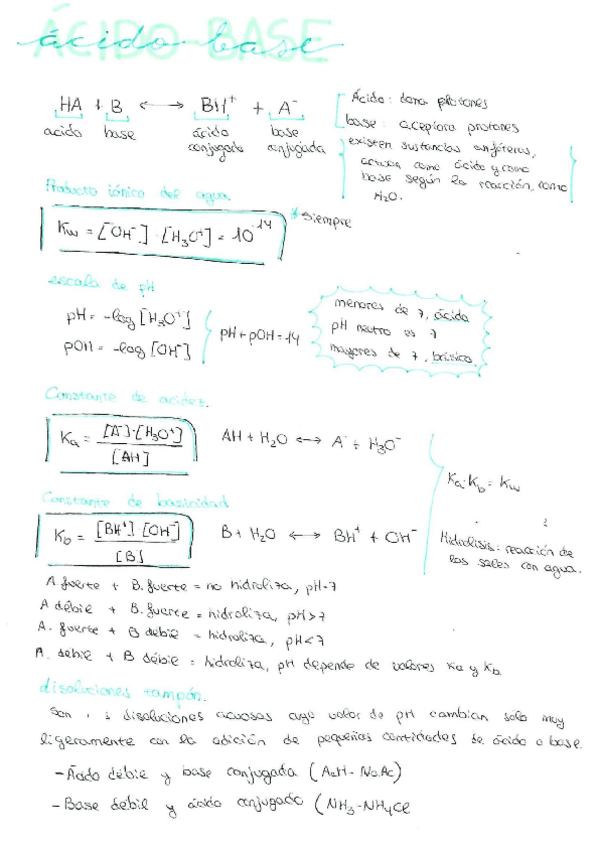 ÁCIDO-BASE
ácido-base
HA + B ⟷ BH⁺ + A⁻
acido base ácido conjugado base conjugada
Ácido: dona protones
base: aceptora protones
existen sustancias anfóteras,
actuan como ácido y como
base según la reacción, como
H₂O.
Producto iónico del agua.
Kw = [OH⁻]·[H₃O⁺] = 10⁻¹⁴
*siempre
escala de pH
pH = -log [H₃O⁺]
pOH = -log [OH⁻]
pH + pOH = 14
menores de 7, ácida
pH neutro es 7
mayores de 7, básica.
Constante de acidez.
Ka = [A⁻]·[H₃O⁺] / [AH]
AH + H₂O ⟷ A⁻ + H₃O⁻
Constante de basicidad
Kb = [BH⁺]·[OH⁻] / [B]
B + H₂O ⟷ BH⁺ + OH⁻
Ka·Kb = Kw
Hidrolisis: reacción de
las sales con agua.
A fuerte + B. fuerte = no hidroliza, pH=7
A débil + B. fuerte = hidroliza, pH>7
A. fuerte + B débil = hidroliza, pH<7
A. debil + B débil = hidroliza, pH depende de valores Ka y Kb
disoluciones tampón.
Son disoluciones acuosas cuyo valor de pH cambian solo muy
ligeramente con la adición de pequeñas cantidades de ácido o base.
-Ácido débil y base conjugada (AcH-NaAc)
-Base debil y ácido conjugado (NH₃-NH₄Cl